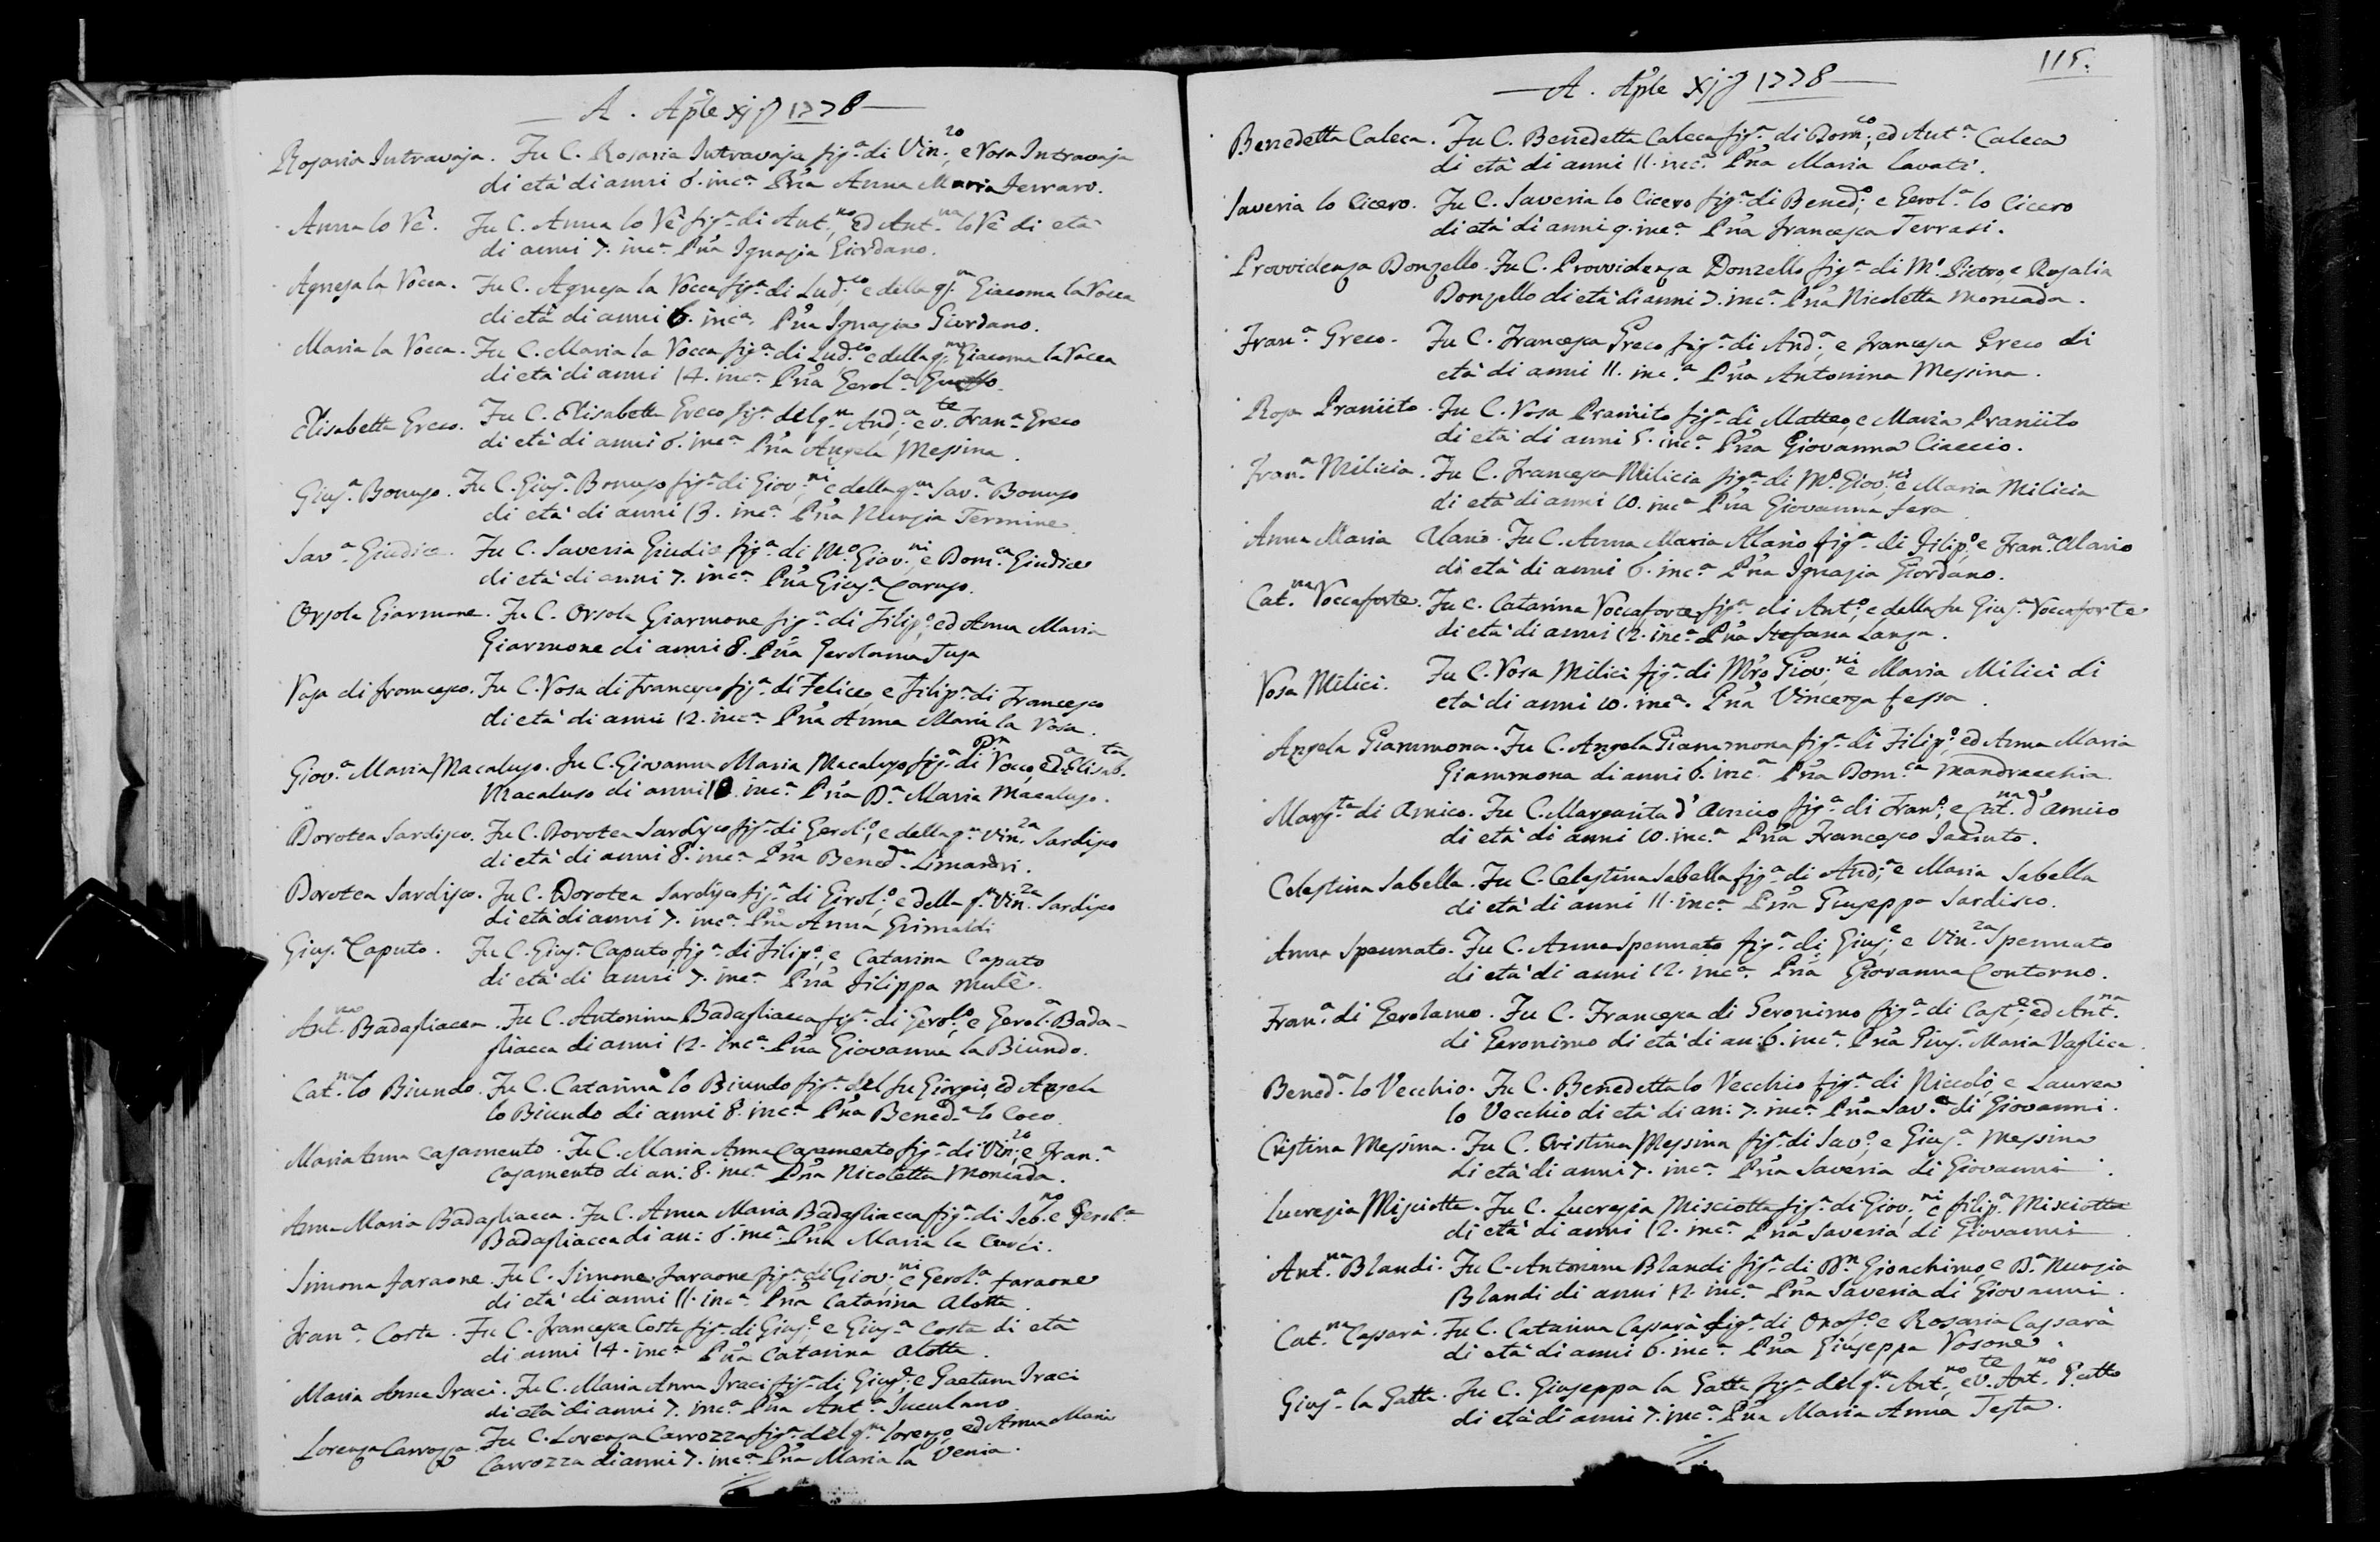 A. Aple xj J 1778
Rosaria Intravaja. Fu C. Rosaria Intravaja figa. di Vinzo., e Rosa Intravaja
di età di anni 6. inca. Pna Anna Maria Ferraro.
Anna lo Vê. Fu C. Anna lo Vê figa. di Antno., ed Antna. lo Vê di età
di anni 7. inca. Pna Ignazia Giordano.
Agnesa la Rocca. Fu C. Agnesa la Rocca figa. di Ludco., e della qm. Giacoma la Rocca
di età di anni 6. inca. Pna Ignazia Giordano.
Maria la Rocca. Fu C. Maria la Rocca figa. di Ludco. e della qm. Giacoma la Rocca
di età di anni 14. inca. Pna Gerola.
Elisabetta Greco. Fu C. Elisabetta Greco figa. del qm. Anda., e vte. Frana. Greco
di età di anni 6. inca. Pna Angela Messina.
Giusa. Bonuso. Fu C. Giusa. Bonuso figa. di Giovni., e della qm. Sava. Bonuso
di età di anni 13. inca. Pna Nunzia Termine
Sava. Giudice. Fu C. Saveria Giudice figa. di Mo. Giovni., e Domca. Giudice
di età di anni 7. inca. Pna Giusa. Caruso.
Orsola Giarmone. Fu C. Orsola Giarmone figa. di Filipo., ed Anna Maria
Giarmone di anni 8. Pna Gerolama Tusa
Rosa di Francesco. Fu C. Rosa di Francesco figa. di Felice, e Filipa. di Francesco
di età di anni 12. inca. Pna Anna Maria la Rosa.
Giova. Maria Macaluso. Fu C. Giovanna Maria Macaluso figa. di Dn. Rocco, e Da. Elisabta.
Macaluso di anni 10. inca. Pna Da. Maria Macaluso.
Dorotea Sardisco. Fu C. Dorotea Sardisco figa. di Gerolo., e della qm. Vinza. Sardisco
di età di anni 8. inca. Pna Beneda. Limandri.
Dorotea Sardisco. Fu C. Dorotea Sardisco figa. di Girolo., e della qm. Vinza. Sardisco
di età di anni 7. inca. Pna Anna Grimaldi
Giusa. Caputo. Fu C. Giusa. Caputo figa. di Filipo., e Catarina Caputo
di età di anni 7. inca. Pna Filippa Mulè.
Antna. Badagliacca. Fu C. Antonina Badagliacca figa. di Gerolo., e Gerola. Bada-
gliacca di anni 12. inca. Pna Giovanna la Biundo.
Catna. lo Biundo. Fu C. Catarina lo Biundo figa. del fu Giorgio, ed Angela
lo Biundo di anni 8. inca. Pna Beneda. lo Coco.
Maria Anna Casamento. Fu C. Maria Anna Casamento figa. di Vinzo., e Frana.
Casamento di an: 8. inca. Pna Nicoletta Moncada.
Anna Maria Badagliacca. Fu C. Anna Maria Badagliacca figa. di Sebno. e Gerola.
Badagliacca di an: 6. inca. Pna Maria la Curci.
Simona Faraone. Fu C. Simona Faraone figa. di Giovni., e Gerola. Faraone
di età di anni 11. inca. Pna Catarina Alotta.
Frana. Costa. Fu C. Francesca Costa figa. di Giuse., e Giusa. Costa di età
di anni 14. inca. Pna Catarina Alotta.
Maria Anna Iraci. Fu C. Maria Anna Iraci figa. di Giuse., e Gaetana Iraci
di età di anni 7. inca. Pna Anta. Juculano.
Lorenza Carrozza. Fu C. Lorenza Carrozza figa. del qm. Lorenzo, ed Anna Maria
Carrozza di anni 7. inca. Pna Maria la Venia.
115.
A. Aple Xj J 1778
Benedetta Caleca. Fu C. Benedetta Caleca figa. di Domco., ed Anta. Caleca
di età di anni 11. inca. Pna Maria Cavati.
Saveria lo Cicero. Fu C. Saveria lo Cicero figa. di Benedo., e Gerola. lo Cicero
di età di anni 9. inca. Pna Francesca Terrasi.
Provvidenza Donzello. Fu C. Provvidenza Donzello figa. di Mo. Pietro, e Rosalia
Donzello di età di anni 7. inca. Pna Nicoletta Moncada.
Frana. Greco. Fu C. Francesca Greco figa. di Anda., e Francesca Greco di
età di anni 11. inca. Pna Antonina Messina.
Rosa Praniito. Fu C. Rosa Praniito figa. di Matteo, e Maria Praniito
di età di anni 5. inca. Pna Giovanna Ciaccio.
Frana. Milicia. Fu C. Francesca Milicia figa. di Mo. Giovni., e Maria Milicia
di età di anni 10. inca. Pna Giovanna Fera
Anna Maria Alario. Fu C. Anna Maria Alario figa. di Filipo., e Frana. Alario
di età di anni 6. inca. Pna Ignazia Giordano.
Catna. Roccaforte. Fu C. Catarina Roccaforte figa. di Anto., e della fu Giusa. Roccaforte
di età di anni 12. inca. Pna Stefana Lanza.
Rosa Milici. Fu C. Rosa Milici figa. di Mro Giovni., e Maria Milici di
età di anni 10. inca. Pna Vincenza Fessa.
Angela Giammona. Fu C. Angela Giammona figa. di Filipo., ed Anna Maria
Giammona di anni 6. inca. Pna Domca. Mandracchia.
Margta. di Amico. Fu C. Margarita d'Amico figa. di Frano., e Catna. d'Amico
di età di anni 10. inca. Pna Francesco Jacinto.
Celestina Sabella. Fu C. Celestina Sabella figa. di Anda., e Maria Sabella
di età di anni 11. inca. Pna Giuseppa Sardisco.
Anna Spennato. Fu C. Anna Spennato figa. di Giuse., e Vinza. Spennato
di età di anni 12. inca. Pna Giovanna Contorno.
Frana. di Gerolamo. Fu C. Francesca di Geronimo figa. di Caste., ed Antna.
di Geronimo di età di an: 6. inca. Pna Giusa. Maria Vaglica.
Beneda. lo Vecchio. Fu C. Benedetta lo Vecchio figa. di Niccolò, e Laurea
lo Vecchio di età di an: 7. inca. Pna Sava. di Giovanni.
Cristina Messina. Fu C. Cristina Messina figa. di Savo., e Giusa. Messina
di età di anni 7. inca. Pna Saveria di Giovanni.
Lucrezia Misciotta. Fu C. Lucrezia Misciotta figa. di Giovni., e Filipa. Misciotta
di età di anni 12. inca. Pna Saveria di Giovanni.
Antna. Blandi. Fu C. Antonina Blandi figa. di Dn. Gioachimo, e Da. Nunzia
Blandi di anni 12. inca. Pna Saveria di Giovanni.
Catna. Cassarà. Fu C. Catarina Cassarà figa. di Onofo. e Rosaria Cassarà
di età di anni 6. inca. Pna Giuseppa Rosone.
Giusa. la Gatta. Fu C. Giuseppa la Gatta figa. del qm. Antno., e vte. Antno. Gatto
di età di anni 7. inca. Pna Maria Anna Testa.